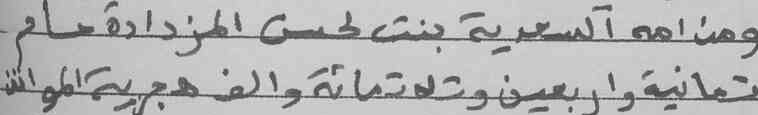 ومن امه السعدية بنت لحسن المزدادة عام
ثمانية واربعين وثلاثمائة والف هجرية الموافق